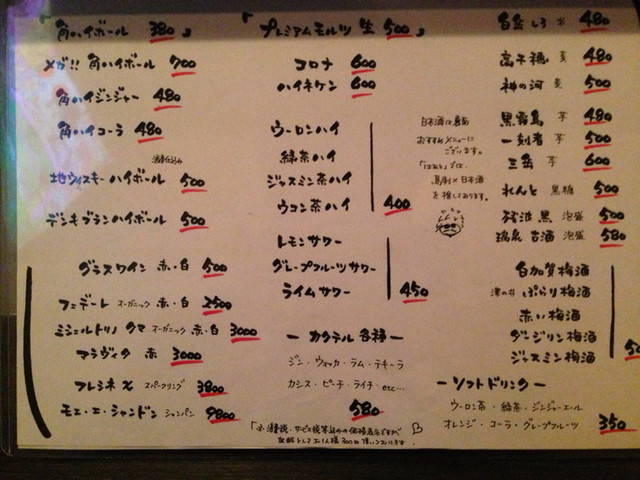 「角ハイボール 380」
メガ!! 角ハイボール 700
角ハイジンジャー 480
角ハイコーラ 480
地ウィスキーハイボール 500
デンキブランハイボール 500
グラスワイン 赤・白 500
フェデート オーガニック 赤・白 2500
ミシェルトリノ クマ オーガニック 赤・白 3000
マラヴィタ 赤 3000
フレシネ スパークリング 3800
モエ・エ・シャンドン シャンパン 9800
「プレミアムモルツ 生 500」
コロナ 600
ハイネケン 600
ウーロンハイ
緑茶ハイ
ジャスミン茶ハイ
ウコン茶ハイ
400
レモンサワー
グレープフルーツサワー
ライムサワー
450
ー カクテル各種 ー
ジン・ウォッカ・ラム・テキーラ
カシス・ピーチ・ライチ etc...
580
日本酒は裏面
おすすめメニューに
ございます。
鳥刺×日本酒
を推しております。
白岳しろ 米 480
高千穂 麦 480
神の河 麦 500
黒霧島 芋 480
一刻者 芋 500
三岳 芋 600
れんと 黒糖 500
残波 黒 泡盛 500
瑞泉 古酒 泡盛 580
白加賀梅酒
ぷらり梅酒
赤い梅酒
ダージリン梅酒
ジャスミン梅酒
ー ソフトドリンク ー
ウーロン茶・緑茶・ジンジャーエール
オレンジ・コーラ・グレープフルーツ 350